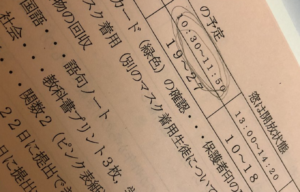 の予定
窓は開放状態
10:30~11:50
13:00~14:20
19~27
10~18
カード(緑色)の確認・・・保護者印
マスク着用(別のマスク着用生徒につい
物の回収
国語・・・語句ノート
社会・・・教科書プリント3枚,
関数2(ピンク表紙
22日に提出で
日に提出